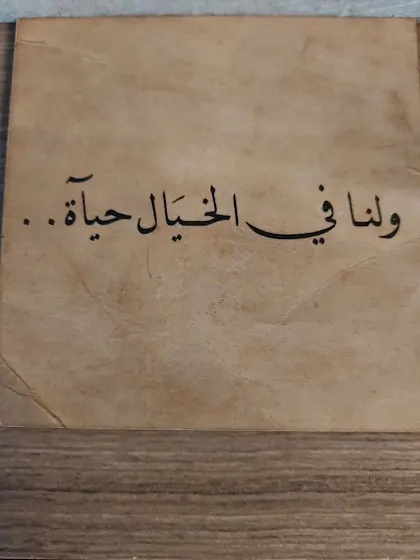 ولنا في الخيَال حيآة . .